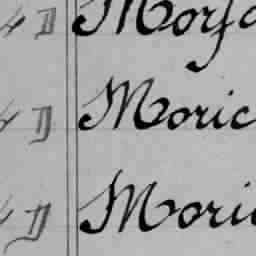 4 D Morf
4 D Moric
4 D Moric